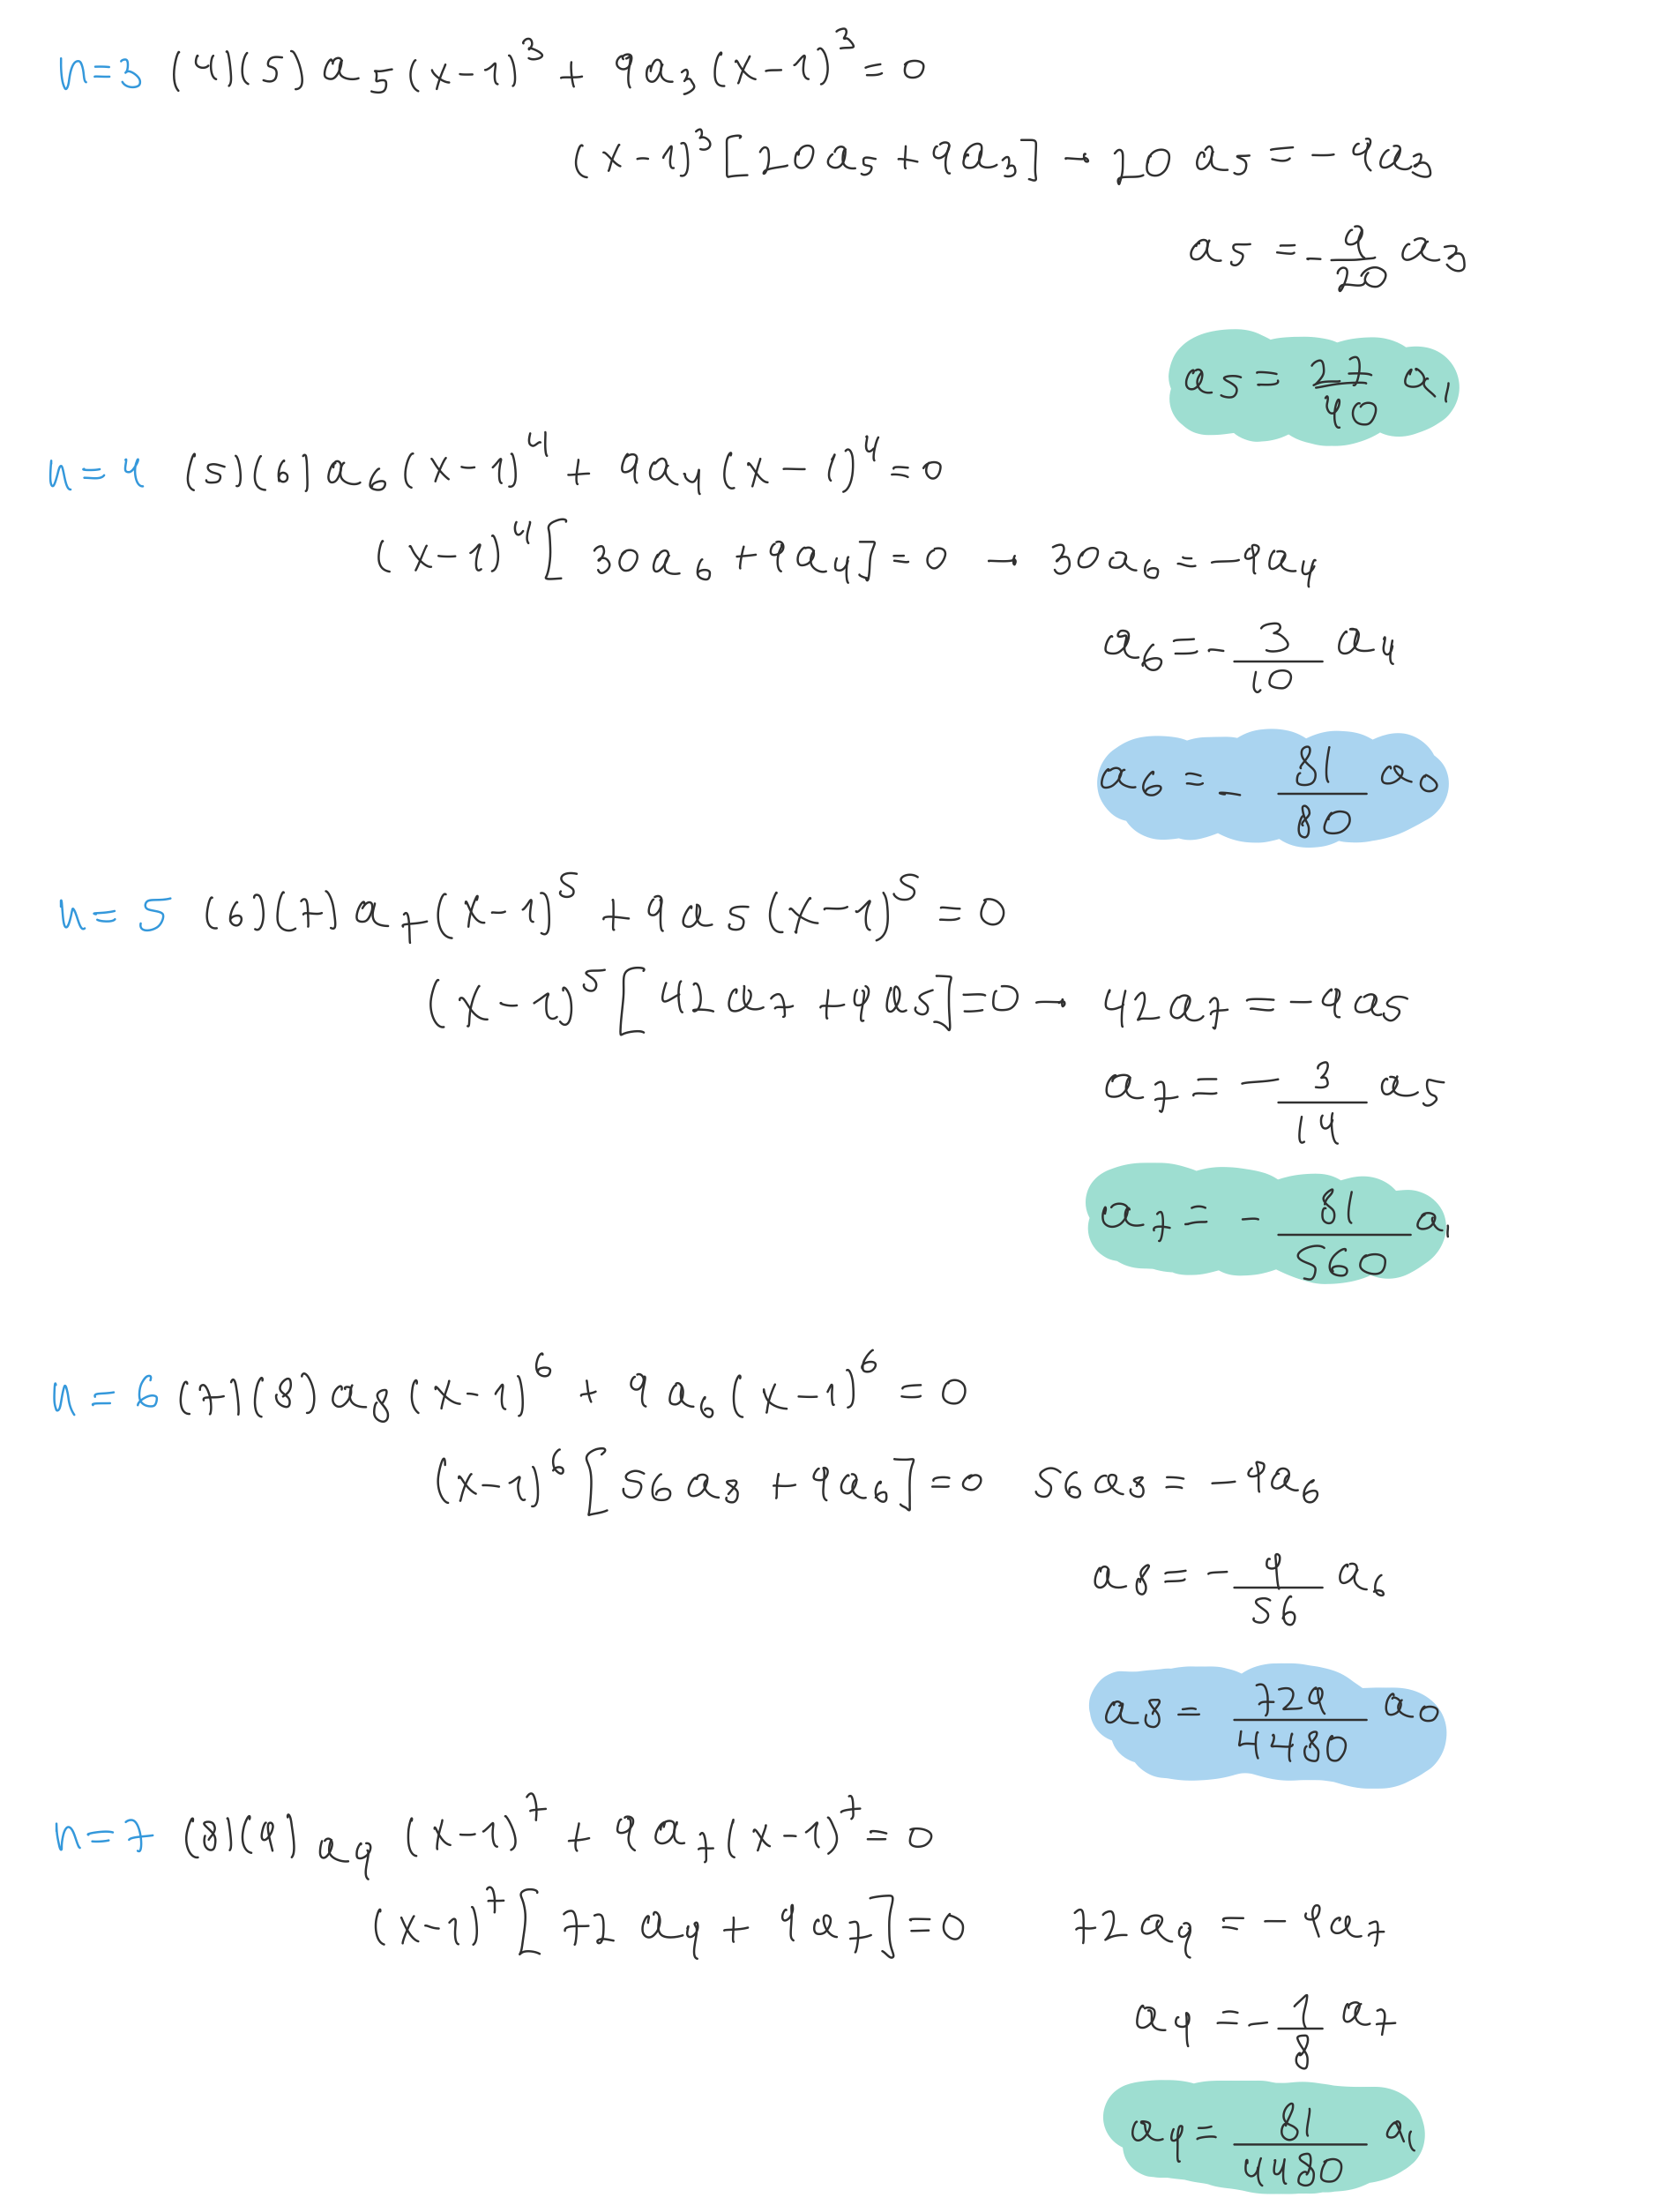 n=3 (4)(5) a₅ (x-1)³ + 9a₃ (x-1)³ = 0
(x-1)³ [20a₅ + 9a₃] → 20 a₅ = - 9a₃
a₅ = - 9/20 a₃
a₅ = 27/40 a₁
n=4 (5)(6) a₆ (x-1)⁴ + 9a₄ (x-1)⁴ = 0
(x-1)⁴ [30a₆ + 9a₄] = 0 → 30a₆ = -9a₄
a₆ = - 3/10 a₄
a₆ = - 81/80 a₀
n=5 (6)(7) a₇ (x-1)⁵ + 9a₅ (x-1)⁵ = 0
(x-1)⁵ [42a₇ + 9a₅] = 0 → 42a₇ = -9a₅
a₇ = - 3/14 a₅
a₇ = - 81/560 a₁
n=6 (7)(8) a₈ (x-1)⁶ + 9a₆ (x-1)⁶ = 0
(x-1)⁶ [56a₈ + 9a₆] = 0 56a₈ = -9a₆
a₈ = - 9/56 a₆
a₈ = 729/4480 a₀
n=7 (8)(9) a₉ (x-1)⁷ + 9a₇ (x-1)⁷ = 0
(x-1)⁷ [72a₉ + 9a₇] = 0 72a₉ = -9a₇
a₉ = - 1/8 a₇
a₉ = 81/4480 a₁